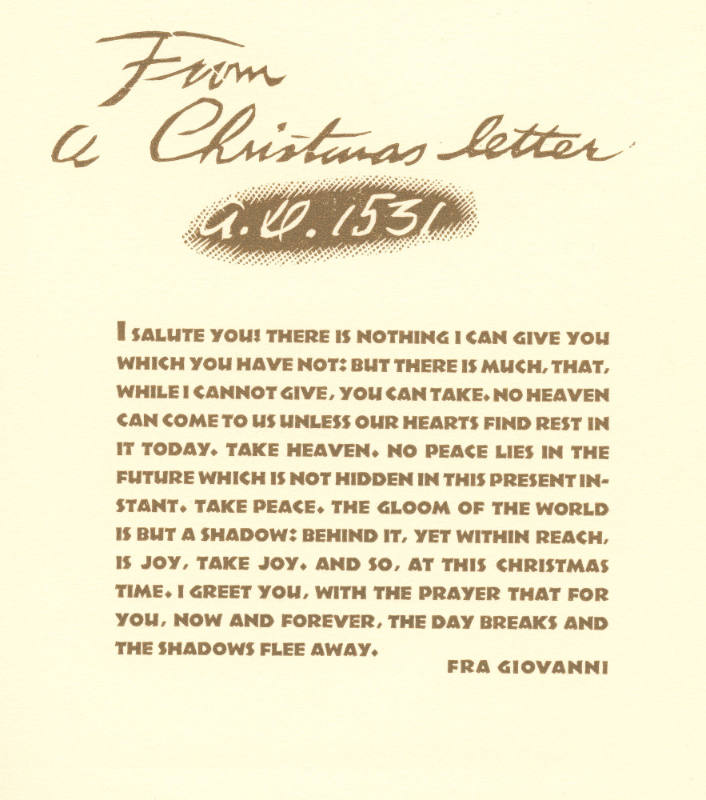 From
a Christmas letter
a.d. 1531
I SALUTE YOU! THERE IS NOTHING I CAN GIVE YOU
WHICH YOU HAVE NOT: BUT THERE IS MUCH, THAT,
WHILE I CANNOT GIVE, YOU CAN TAKE. NO HEAVEN
CAN COME TO US UNLESS OUR HEARTS FIND REST IN
IT TODAY. TAKE HEAVEN. NO PEACE LIES IN THE
FUTURE WHICH IS NOT HIDDEN IN THIS PRESENT IN-
STANT. TAKE PEACE. THE GLOOM OF THE WORLD
IS BUT A SHADOW: BEHIND IT, YET WITHIN REACH,
IS JOY, TAKE JOY. AND SO, AT THIS CHRISTMAS
TIME. I GREET YOU, WITH THE PRAYER THAT FOR
YOU, NOW AND FOREVER, THE DAY BREAKS AND
THE SHADOWS FLEE AWAY.
FRA GIOVANNI